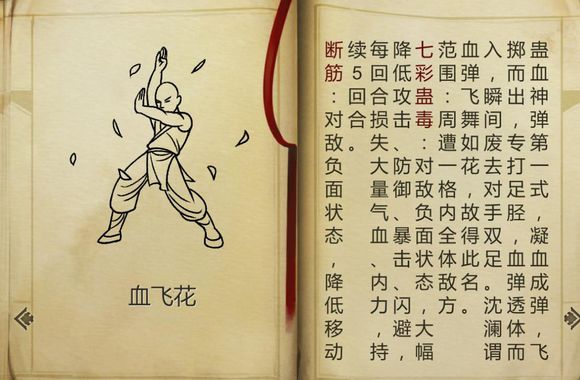 血飞花
蛊血神弹第一式，凝血成弹，飞
掷而出，专打足胫，血弹透体而
入，瞬间废去对手双足。沈澜谓
血弹飞舞如花，故得此名。
范围：周遭一格内全体敌方。
七彩蛊毒：对敌负面状态，大幅
降低攻击、防御、暴击、闪避，
每回合损失大量气血、内力，持
续5回合。
断筋：对敌负面状态，降低移动